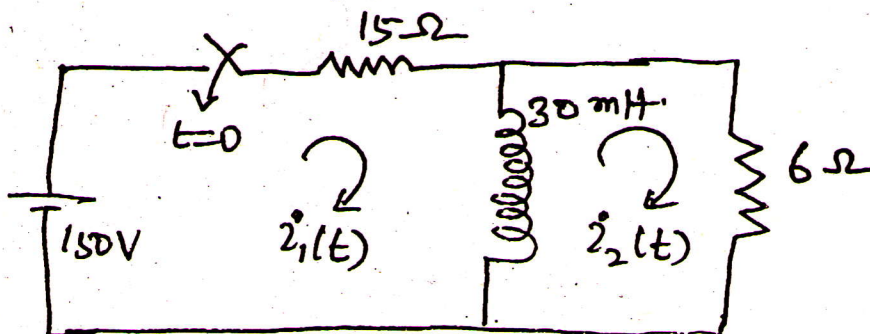 15Ω
t=0
30 mH.
6 Ω
150V
i₁(t)
i₂(t)